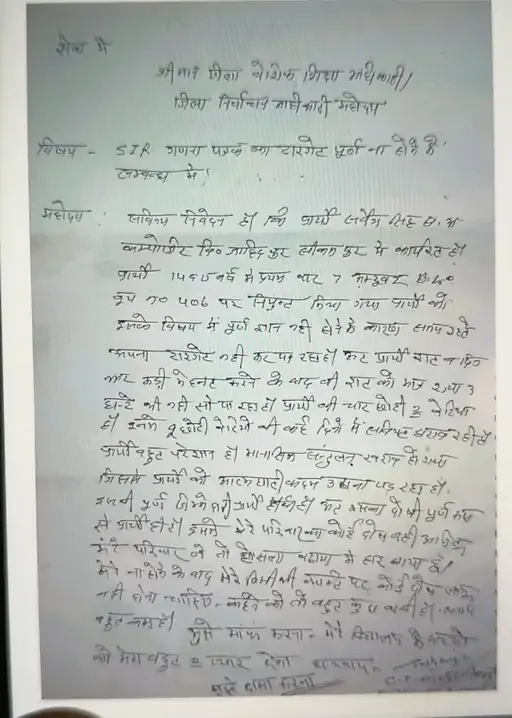 सेवा में
श्रीमान जिला बेसिक शिक्षा अधिकारी/
जिला निर्वाचन अधिकारी महोदय
विषय - SIR गणना पत्रक का टारगेट पूर्ण ना होने के
सम्बन्ध में।
महोदय, सविनय निवेदन है कि प्रार्थी सर्वेश सिंह स. अ.
कम्पोजिट वि० जाहिदपुर सीकमपुर में कार्यरत है।
प्रार्थी वर्ष में प्रथम बार 7 अक्टूबर
no 406 पर नियुक्त किया गया प्रार्थी को
इसके विषय में पूर्ण ज्ञान नही होने के कारण
अपना टारगेट नही कर पा रहा हूँ प्रार्थी रात व दिन
कड़ी मेहनत करने के बाद भी रात को मात्र 3
घन्टे भी नही सो पा रहा है प्रार्थी की चार छोटी 2 बेटिया
है। इनमें 2 छोटी बेटियो की कई दिनो से तबियत खराब रही है।
प्रार्थी बहुत परेशान है। मानसिक संतुलन खराब हो गया
जिससे प्रार्थी को आत्मघाती कदम उठाना पड़ रहा है।
इसकी पूर्ण जिम्मेदारी प्रार्थी की है। दोषी पूर्ण रूप
से प्रार्थी ही है। इसमें मेरे परिवार का कोई दोष नही
मेरे परिवार ने तो हौसला बढाया मै हार गया हूँ।
मेरे ना होने के बाद मेरे किसी भी पर कोई
नही होना चाहिए कहने को तो बहुत कुछ बाकी है। समय
बहुत कम है।
मुझे माफ करना - मेरे विद्यालय के बच्चो
को मेरा बहुत 2 प्यार देना धन्यवाद -
मुझे क्षमा करना